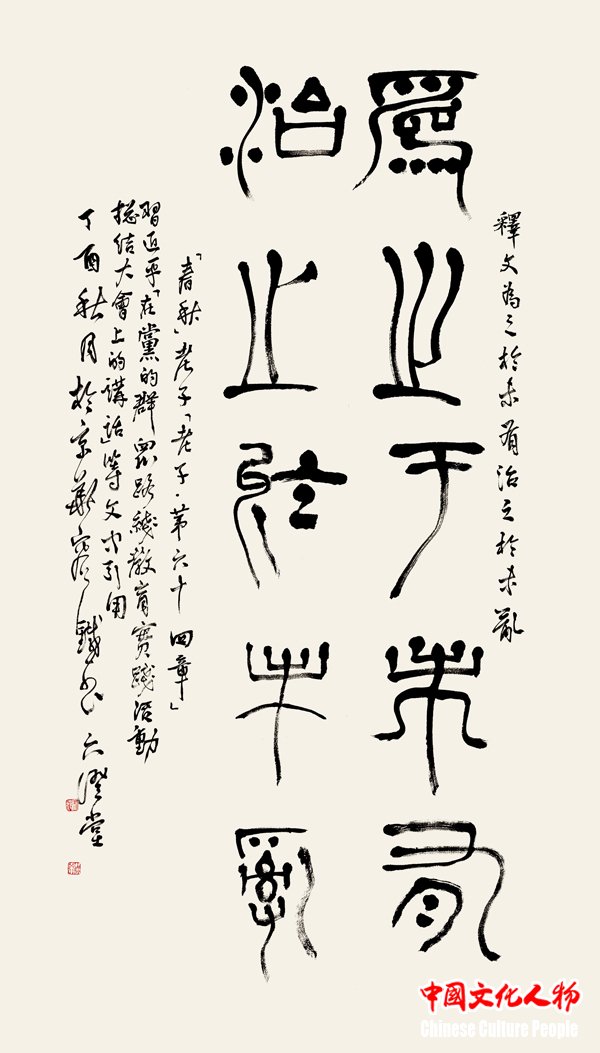 釋文為之於未有治之於未亂
為之于未有
治之於未亂
「春秋」老子「老子·第六十四章」
習近平「在黨的群眾路綫教育實踐活動
總結大會上的講話」等文中引用
丁酉秋月於京華 堂
中國文化人物
Chinese Culture People